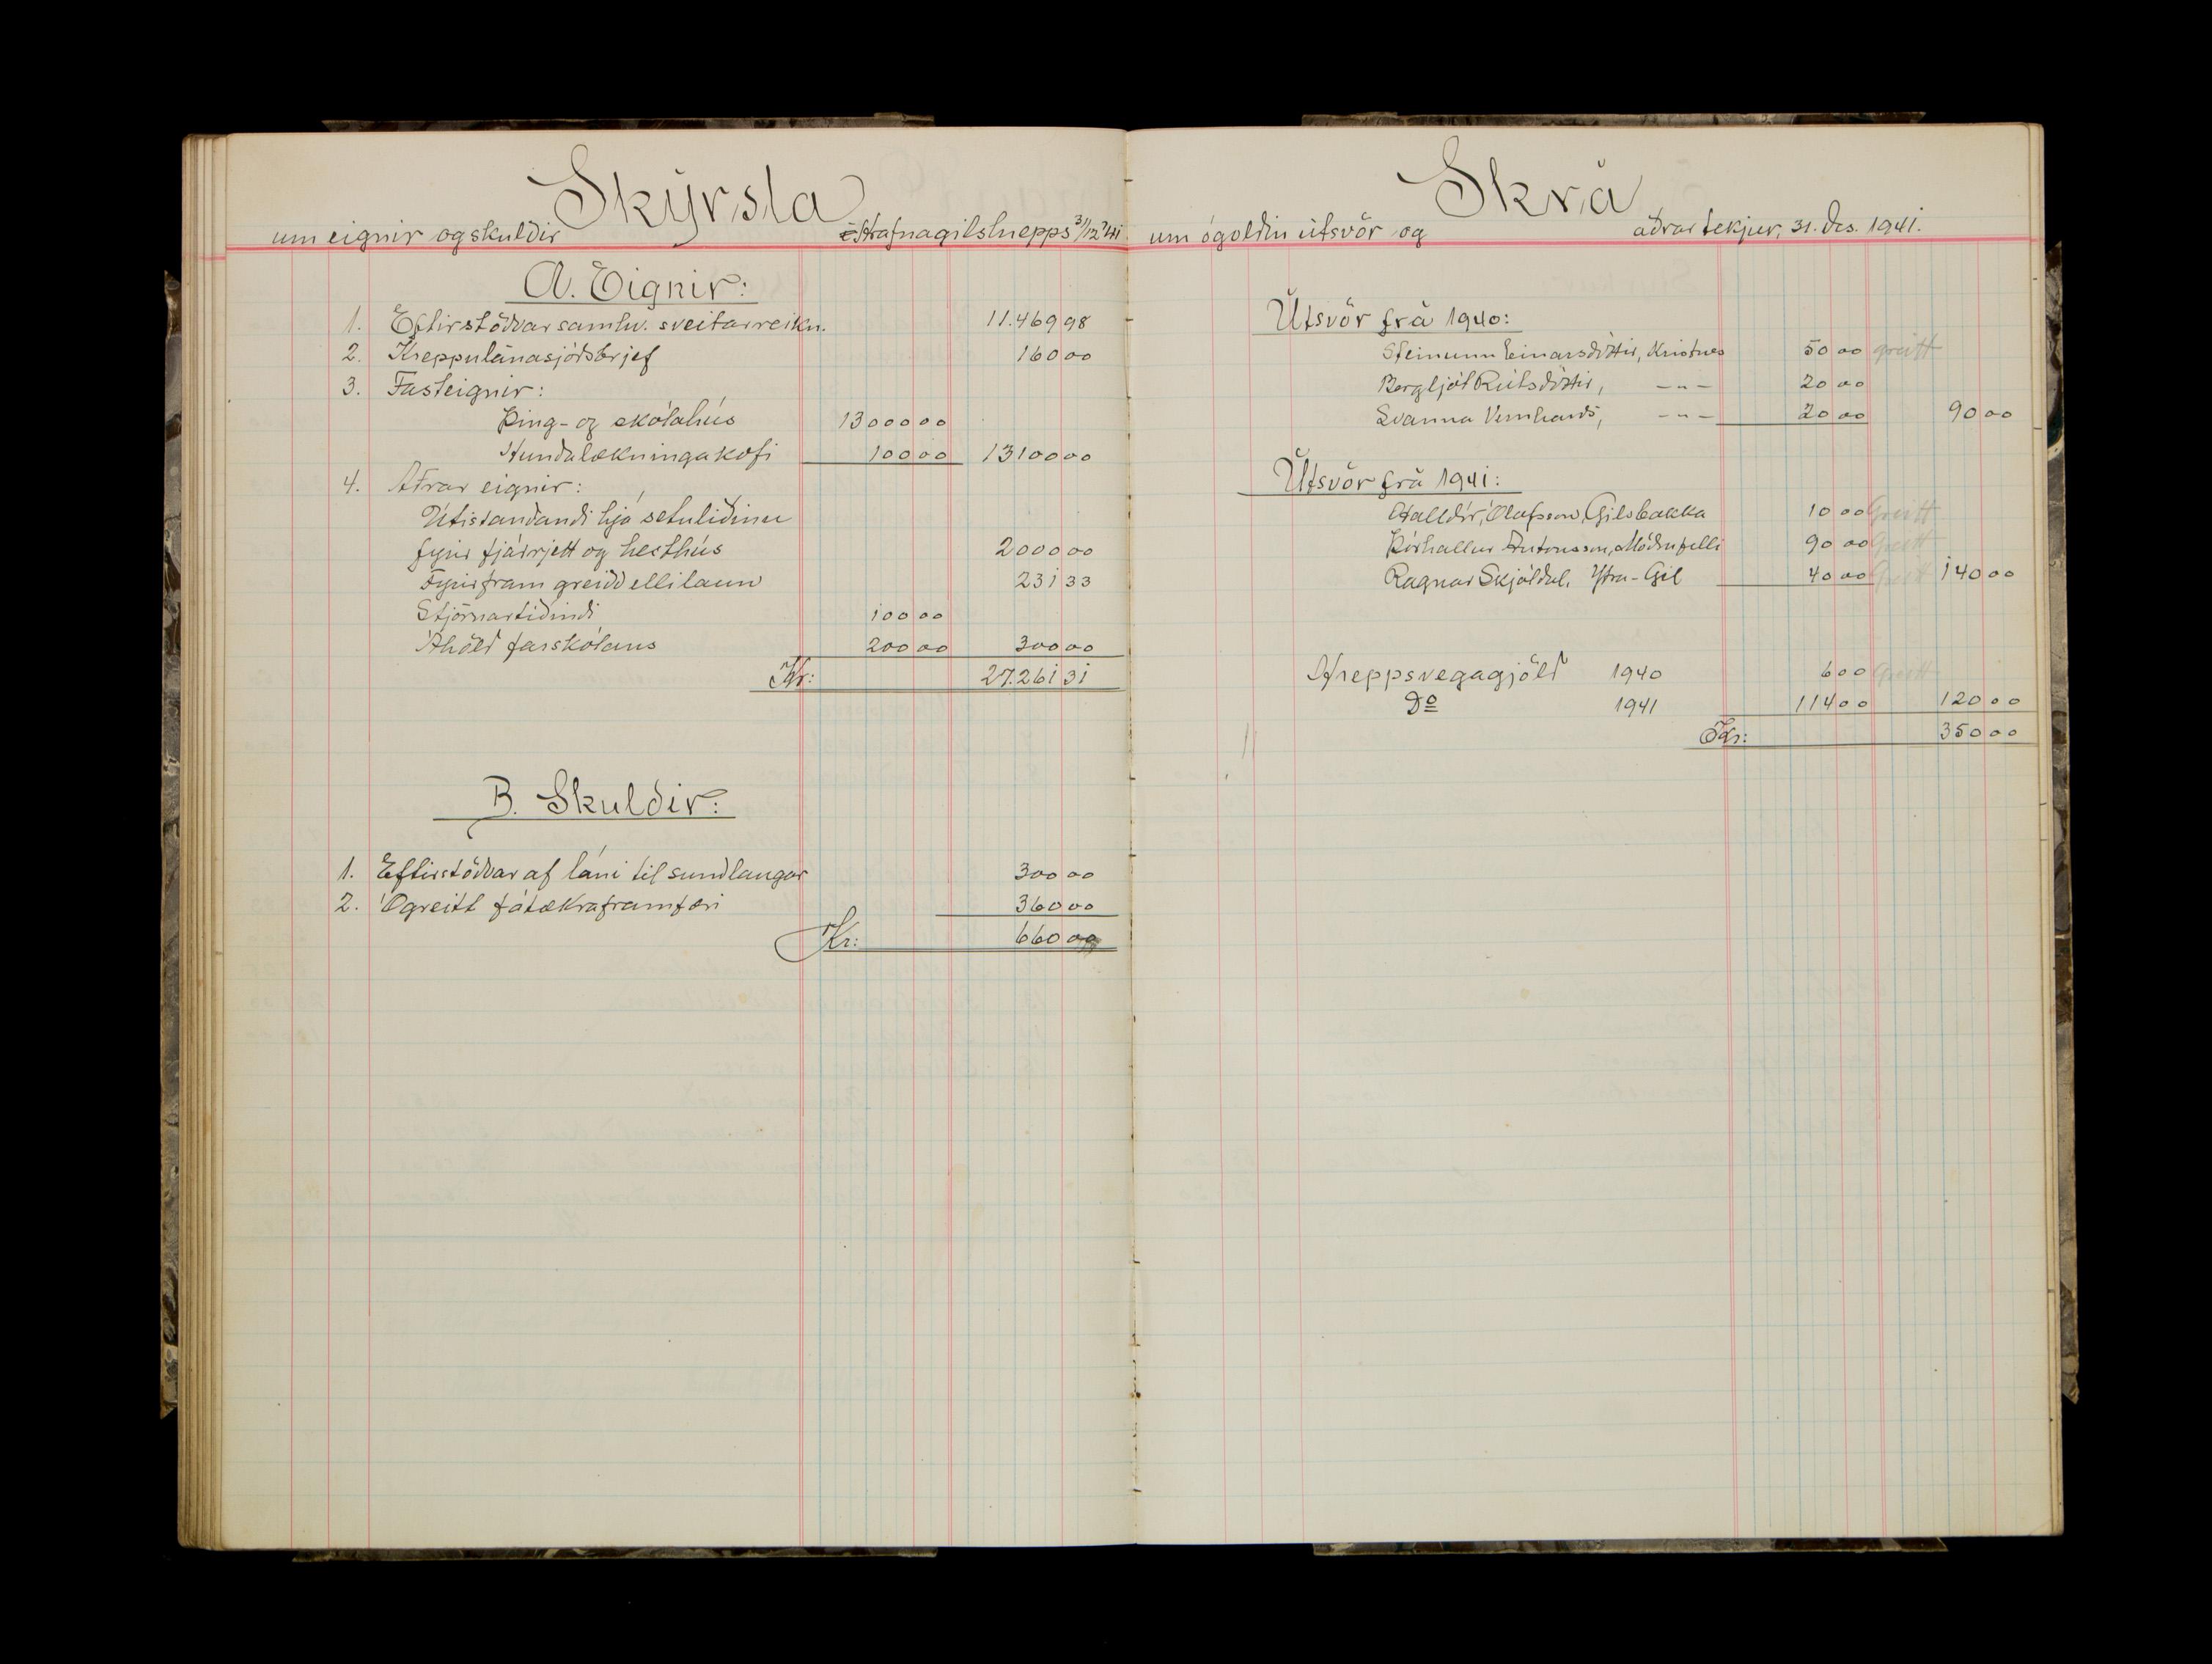 Skýrsla
um eignir og skuldir Hrafnagilshrepps 31/12 '41
A. Eignir:
1. Eftirstöðvar samkv. sveitarreikn. 11.469 98
2. Kreppulánasjóðsbrjef 160 00
3. Fasteignir:
Þing- og skólahús 13000 00
Hundalækningakofi 100 00 13100 00
4. Aðrar eignir:
Útistandandi hjá setuliðinu
fyrir fjárrjett og hesthús 2000 00
Fyrirfram greidd ellilaun 231 33
Stjórnartíðindi 100 00
Áhöld farskólans 200 00 300 00
Kr: 27.261 31
B. Skuldir:
1. Eftirstöðvar af láni til sundlaugar 300 00
2. Ógreitt fátækraframfæri 360 00
Kr: 660 00
Skrá
um ógoldin útsvör og aðrar tekjur, 31. des. 1941.
Útsvör frá 1940:
Steinunn Einarsdóttir, Kristnes 50 00 greitt
Bergljót Rútsdóttir, -"- 20 00
Svanna Vernharðs, -"- 20 00 90 00
Útsvör frá 1941:
Halldór Ólafsson, Gilsbakka 10 00 Greitt
Þórhallur Antonsson, Möðrufelli 90 00 Greitt
Ragnar Skjóldal, Ytra-Gil 40 00 Greitt 140 00
Hreppsvegagjöld 1940 6 00 Greitt
Do 1941 114 00 120 00
Kr: 350 00